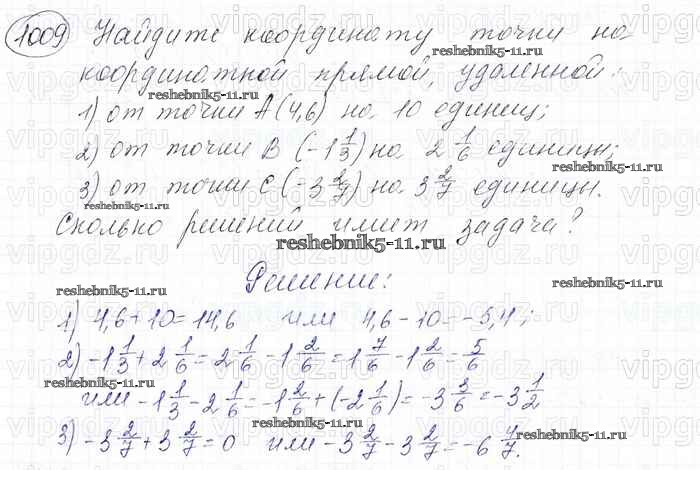 1009 Найдите координату точки на
reshebnik5-11.ru
координатной прямой, удаленной:
reshebnik5-11.ru
1) от точки A(4,6) на 10 единиц;
2) от точки B (-1 1/3) на 2 1/6 единицы;
reshebnik5-11.ru
3) от точки C (-3 2/7) на 3 2/7 единицы.
reshebnik5-11.ru
Сколько решений имеет задача?
reshebnik5-11.ru
Решение:
reshebnik5-11.ru
reshebnik5-11.ru
1) 4,6+10=14,6 или 4,6-10=-5,4;
2) -1 1/3+2 1/6=2 1/6-1 2/6=1 7/6-1 2/6=5/6
reshebnik5-11.ru
или -1 1/3-2 1/6=-1 2/6+(-2 1/6)=-3 3/6=-3 1/2
reshebnik5-11.ru
3) -3 2/7+3 2/7=0 или -3 2/7-3 2/7=-6 4/7.
reshebnik5-11.ru